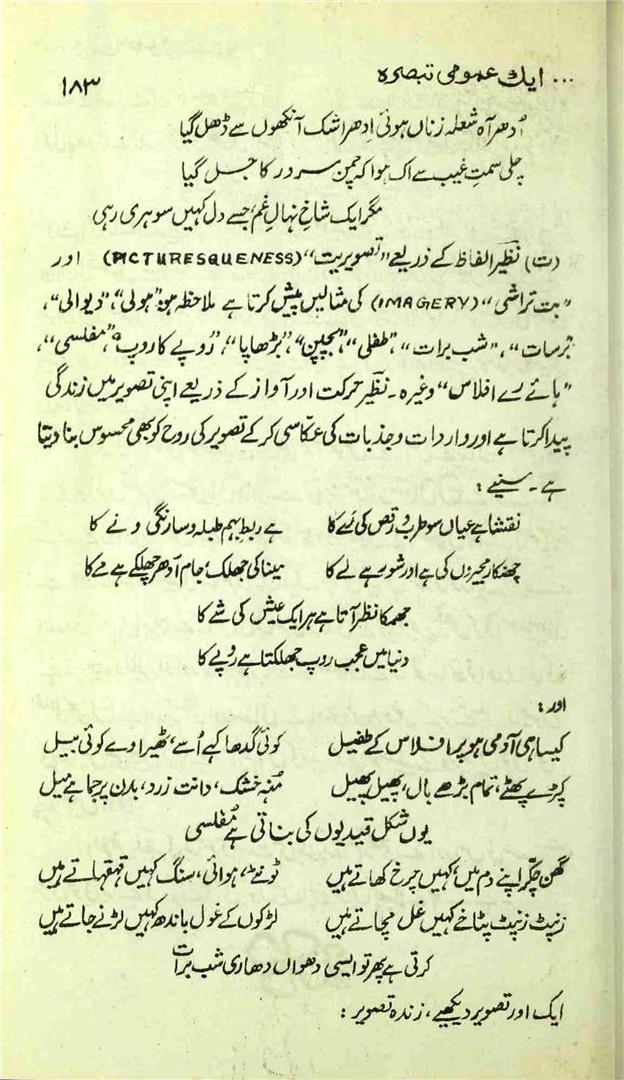 ... ایک عمومی تبصرہ ۱۸۳
اُدھر آہ شعلہ زناں ہوئی اِدھر اشک آنکھوں سے ڈھل گیا
چلی سمتِ غیب سے اک ہوا کہ چمن سرور کا جل گیا
مگر ایک شاخِ نہالِ غم، جسے دل کہیں سو ہری رہی
(ت) نظیر الفاظ کے ذریعے "تصویریت" (PICTURESQUENESS) اور
"بت تراشی" (IMAGERY) کی مثالیں پیش کرتا ہے ملاحظہ ہوں "ہولی"، "دیوالی"،
"برسات"، "شب برات"، "طفلی"، "بچپن"، "بڑھاپا"، "روپے کا روپ"، "مفلسی"،
"ہائے رے افلاس" وغیرہ۔ نظیر حرکت اور آواز کے ذریعے اپنی تصویر میں زندگی
پیدا کرتا ہے اور واردات و جذبات کی عکاسی کر کے تصویر کی روح کو بھی محسوس بنا دیتا
ہے۔ سنیے :
نقشا ہے عیاں سو طرب و رقص کی رَے کا ہے ربط بہم طبلہ و سارنگی و نے کا
جھنکار مجیروں کی ہے اور شور ہے لے کا مینا کی جھلک، جام اُدھر چھلکے ہے مے کا
جھمکا نظر آتا ہے ہر ایک عیش کی شے کا
دنیا میں عجب روپ جھلکتا ہے روپے کا
اور :
کیسا ہی آدمی ہو پر افلاس کے طفیل کوئی گدھا کہے اُسے، ٹھیرا وے کوئی بیل
کپڑے پھٹے، تمام بڑھے بال، پھیل پھیل مُنہ خشک، دانت زرد، بدن پر جما ہے میل
یوں شکل قیدیوں کی بناتی ہے مُفلسی
گھن چکر اپنے دم میں، کہیں چرخ کھاتے ہیں ٹونٹے، ہوائی، سنگ کہیں قہقہاتے ہیں
زنپٹ زنپٹ پٹاخے کہیں غل مچاتے ہیں لڑکوں کے غول باندھ کہیں لڑنے جاتے ہیں
کرتی ہے پھر تو ایسی دھواں دھاری شب برات
ایک اور تصویر دیکھیے، زندہ تصویر :